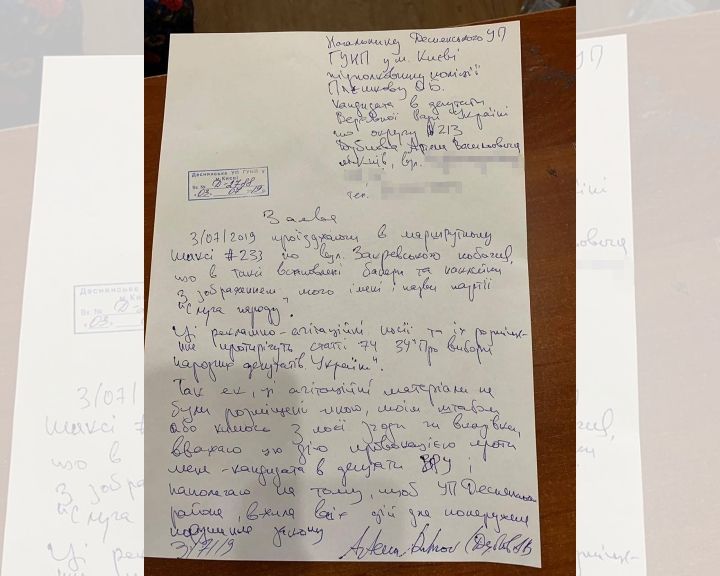 Начальнику Деснянського УП
ГУНП у м. Києві
підполковнику поліції
Пєшкову О.Б.
Кандидата в депутати
Верховної Ради України
по округу №213
Дубнова Артема Васильовича
м. Київ, вул.
тел.
Деснянське УП ГУНП у
м. Києві
Вх. №
03. 07 19
Заява
3/07/2019 проїзджаючи в маршрутному
таксі #233 по вул. Закревського побачив,
що в таксі встановлені банери та наклейки
з зображенням мого імені і назви партії
"Слуга народу".
Ці рекламно-агітаційні носії та їх розміщен-
ня протирічуть статті 74 ЗУ "Про вибори
народних депутатів України".
Так як, ці агітаційні матеріали не
були розміщені мною, моїм штабом
або кимось з моєї згоди чи вказівки,
вважаю цю дію провокацією проти
мене - кандидата в депутати ВРУ і
наполягаю на тому, щоб УП Деснянського
району, вжила всіх дій для попередження
порушення закону
3/7/19